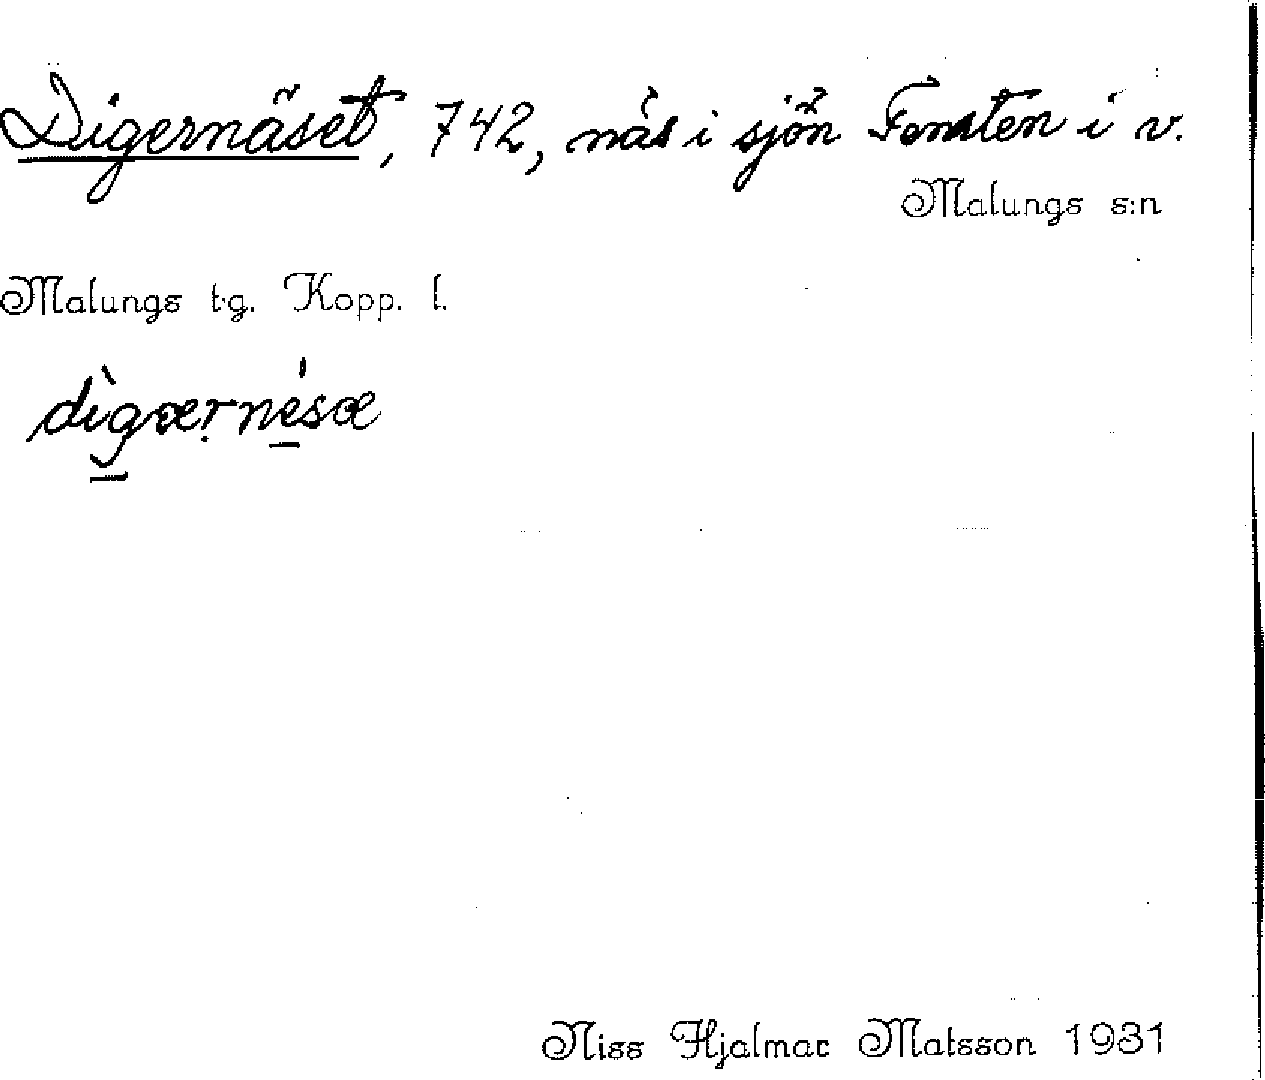 Digernäset, 742, näs i sjön Fonsten i v.
Malungs s:n
Malungs t.g. Kopp. l.
dìgærnésæ
Niss Hjalmar Matsson 1931